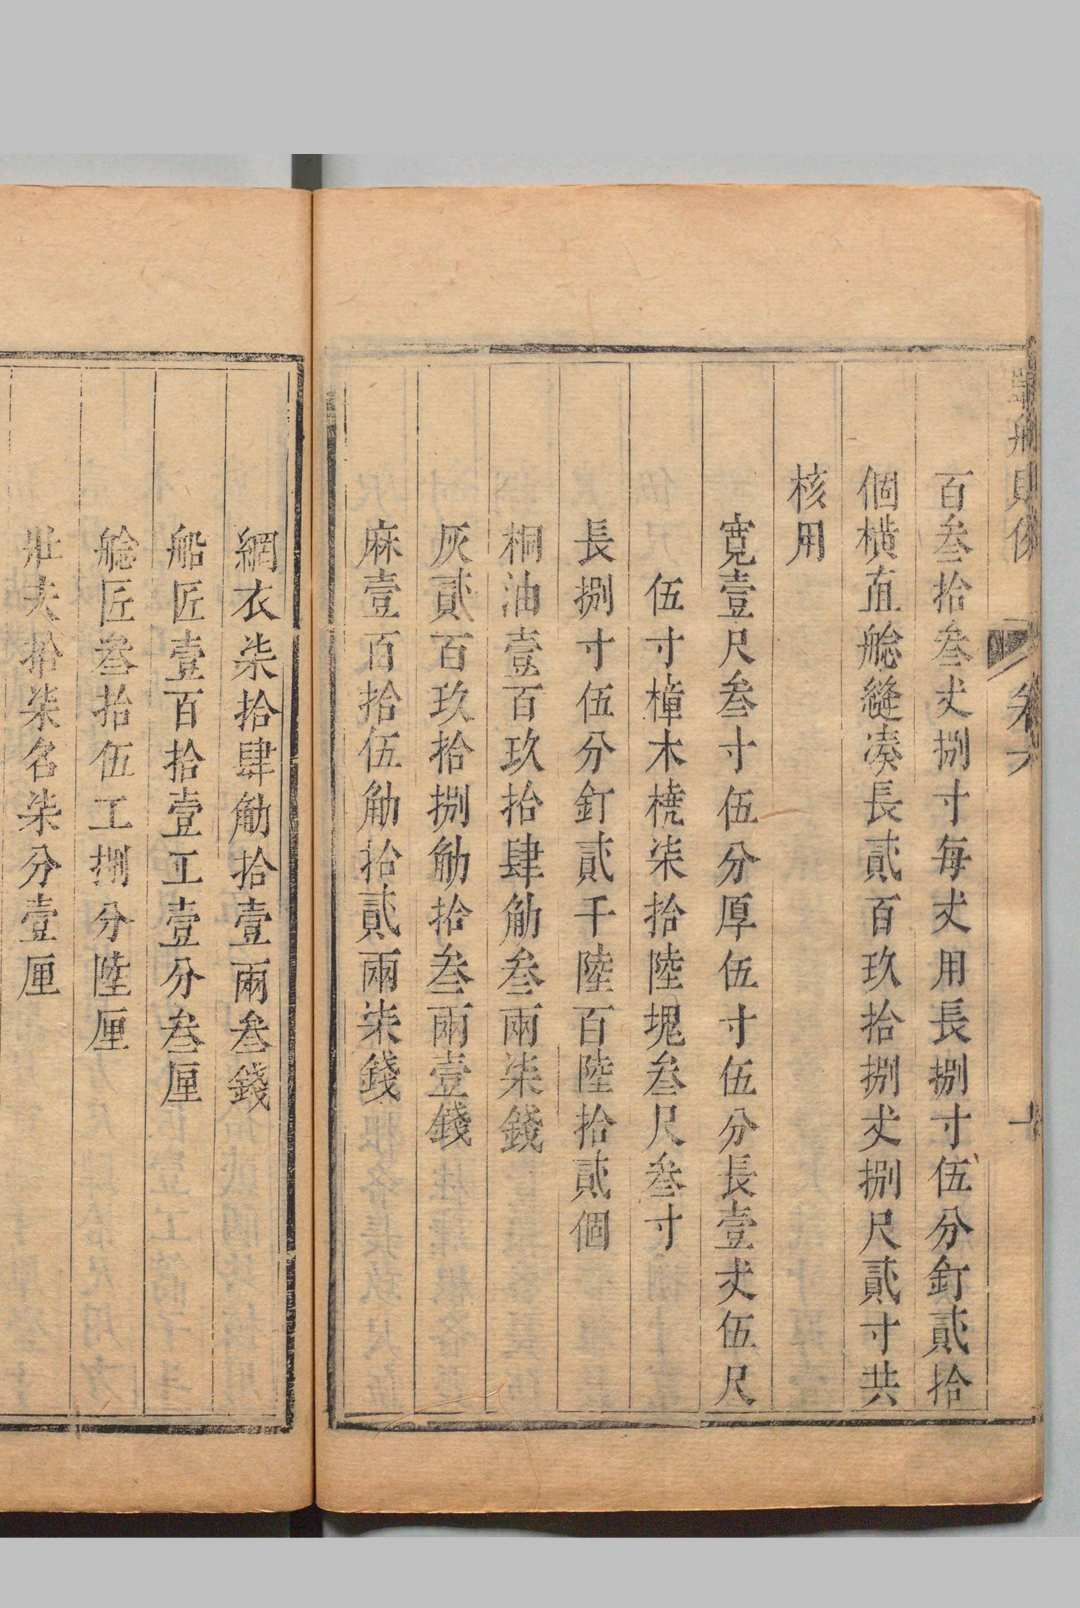 百叁拾叁丈捌寸每丈用長捌寸伍分釘貳拾
個橫直艌縫凑長貳百玖拾捌丈捌尺貳寸共
核用
寬壹尺叁寸伍分厚伍寸伍分長壹丈伍尺
伍寸樟木橈柒拾陸塊叁尺叁寸
長捌寸伍分釘貳千陸百陸拾貳個
桐油壹百玖拾肆觔叁兩柒錢
灰貳百玖拾捌觔拾叁兩壹錢
麻壹百拾伍觔拾貳兩柒錢
網衣柒拾肆觔拾壹兩叁錢
船匠壹百拾壹工壹分叁厘
艌匠叁拾伍工捌分陸厘
壯夫拾柒名柒分壹厘